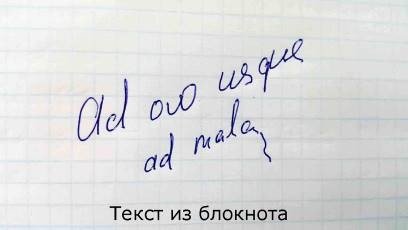 Ad ovo usque
ad mala
Текст из блокнота